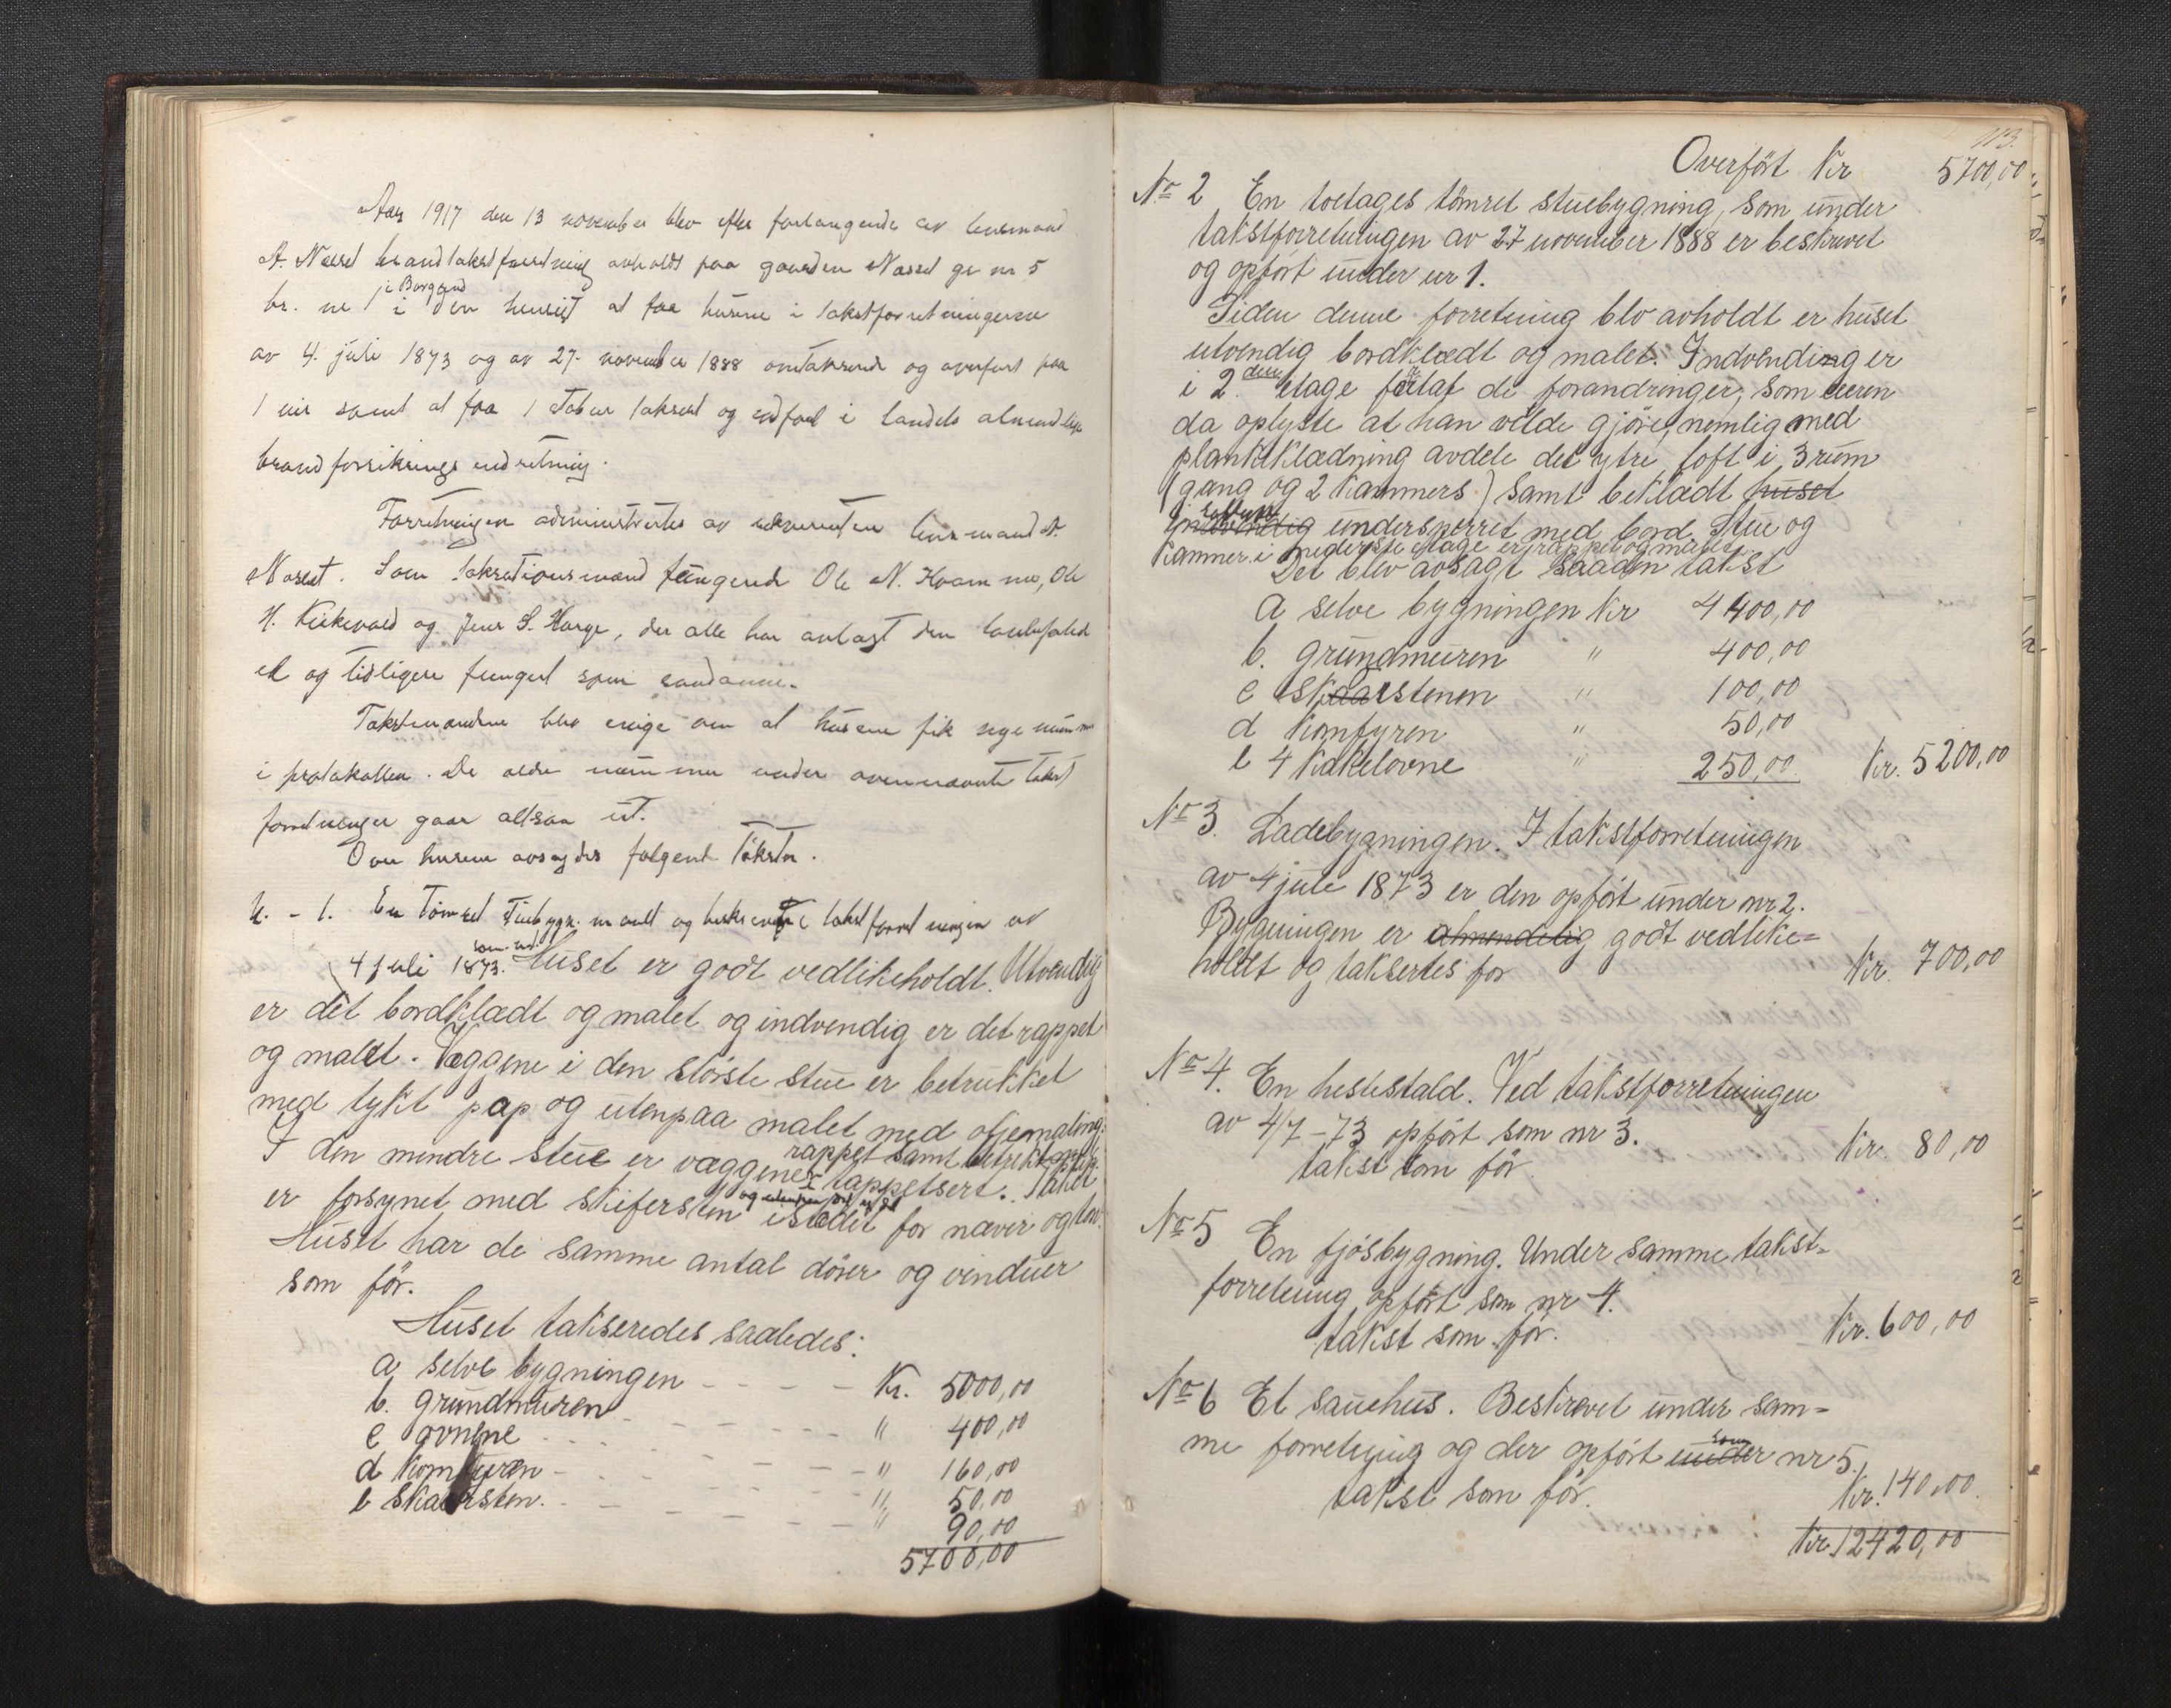 Aar 1917 den 13 november blev efter forlangende av lensmand
A. Næsset brandtakstforretning avholdt paa gaarden Næsset gr nr 5
br. nr 1 i Borgund i den hensigt at faa husene i takstforretningerne
av 4. juli 1873 og av 27. november 1888 omtaksered og overført paa
1 eier samt at faa taksert og indført i landets almindelige
brandforsikrings indretning.
Forretningen administrertes av rekvirenten lensmand A.
Næsset. Som taksationsmænd fungerede Ole N. Hvam, Ole
H. Kirkevold og Jens S. Hauge, der alle har avlagt den lovbefalede
ed og tidligere fungert som saadanne.
Takstmændene blev enige om at husene fik nye nummer
i protokollen. De ældre nummer under ovennævnte takst
forretninger gaar altsaa ut.
Over husene avsagdes følgende takster.
N. - 1. En tømret stuebygn. maalt og beskrevet i takstforretningen av
4 juli 1873. som nr 1. Huset er godt vedlikeholdt. Utvendig
er det bordklædt og malet og indvendig er det rappet
og malet. Væggene i den største stue er betrukket
med tykt pap og utenpaa malet med oljemaling.
I den mindre stue er væggene rappet samt betrukket med pap
og utenpaa tappetsert. Taket
er forsynet med skifersten istedet for næver og torv.
Huset har de samme antal dører og vinduer
som før.
Huset takseredes saaledes:
a selve bygningen - - - - Kr. 5000,00
b. grundmuren - - - - " 400,00
c ovnene - - - - " 160,00
d komfuren - - - - " 50,00
e skaarsten. - - - - " 90,00
5700,00
113.
Overført Kr 5700,00
No 2 En toetages tømret stuebygning, som under
takstforretningen av 27 november 1888 er beskrevet
og opført under nr 1.
Siden denne forretning blev avholdt er huset
utvendig bordklædt og malet. Indvendig er
i 2. den etage foretat de forandringer, som eieren
da oplyste at han vilde gjøre, nemlig med
plankeklædning avdele det ytre loft i 3 rum
(gang og 2 kammers) samt beklædt huset
indvendig i loftets undersperret med bord. Stue og
kammer i nederste etage er rappet og malet.
Det blev avsagt saadan takst
a selve bygningen Kr 4400,00
b. grundmuren " 400,00
c skaarstenen " 100,00
d komfyren " 50,00
e 4 kakelovne " 250,00 Kr. 5200,00
No 3. Ladebygningen. I takstforretningen
av 4 juli 1873 er den opført under nr 2.
Bygningen er almendelig godt vedlike=
holdt og taksertes for Kr. 700,00
No 4. En hestestald. Ved takstforretningen
av 4/7-73 opført som nr 3.
takst som før Kr. 80,00
No 5 En fjøsbygning. Under samme takst=
forretning opført som nr 4.
takst som før. Kr. 600,00
No 6 Et sauehus. Beskrevet under sam=
me forretning og der opført under som nr 5.
takst som før. Kr. 140,00.
Kr. 12420,00